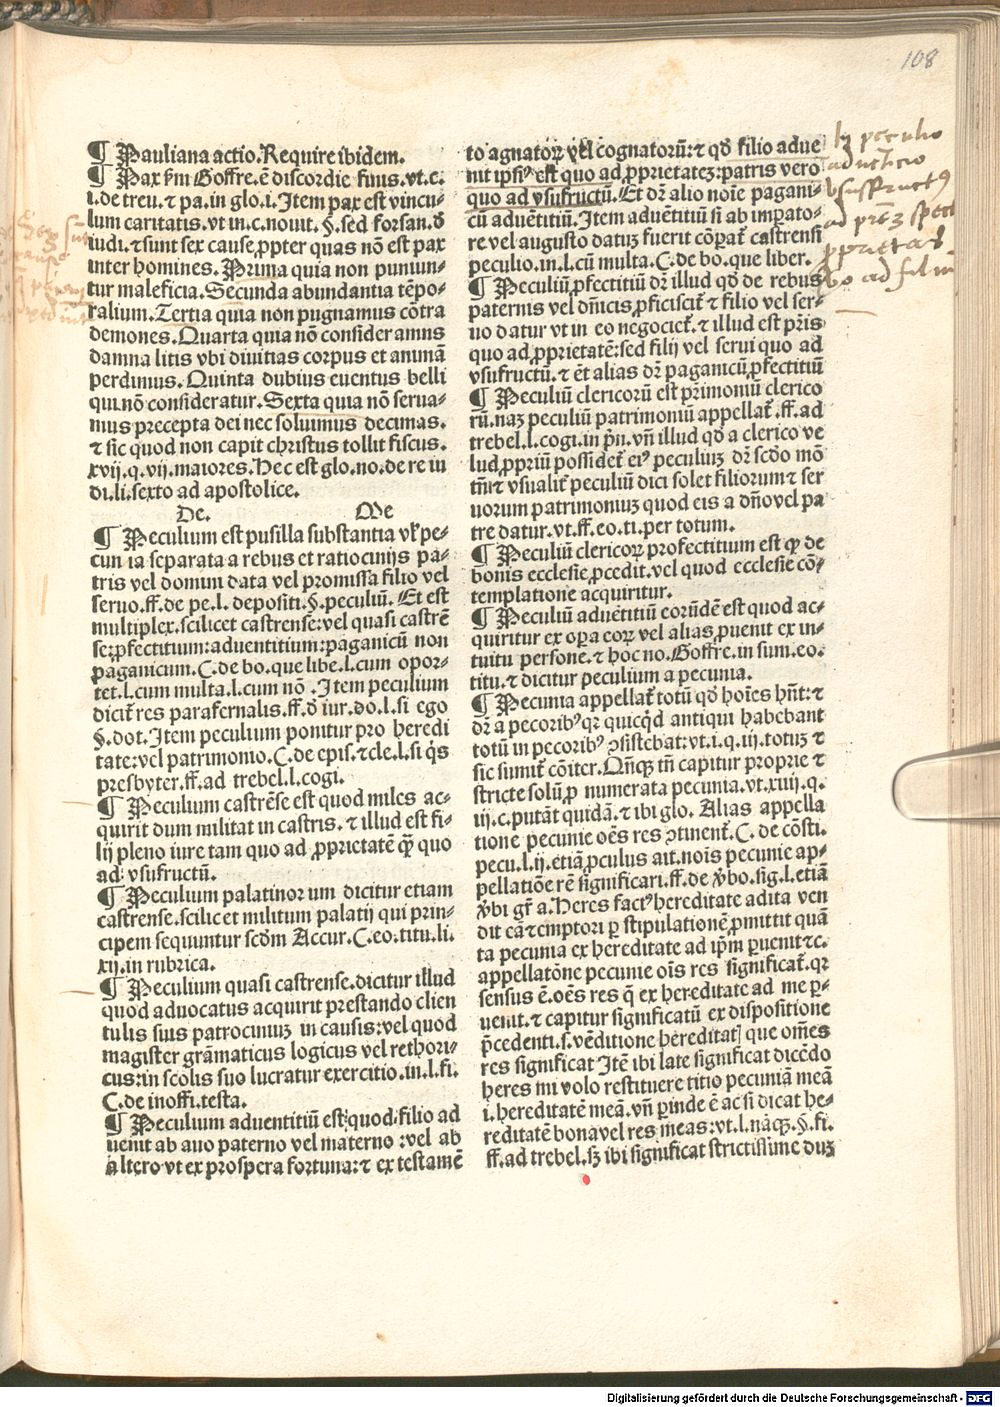 108
¶ Pauliana actio. Require ibidem.
¶ Pax ẜm Goffre. ē discordie finis. vt. c.
i. de treu. ⁊ pa. in glo. i. Item pax est vincu⸗
lum caritatis. vt in. c. nouit. §. sed forsan. đ
iudi. ⁊ sunt sex cause ꝓpter quas nō est pax
inter homines. Prima quia non puniun⸗
tur maleficia. Secunda abundantia tēpo⸗
ralium. Tertia quia non pugnamus cōtra
demones. Quarta quia nō consideramus
damna litis vbi diuitias corpus et animā
perdimus. Quinta dubius euentus belli
qui nō consideratur. Sexta quia nō serua⸗
mus precepta dei nec soluimus decimas.
⁊ sic quod non capit christus tollit fiscus.
xvij. q. vij. maiores. Hec est glo. no. de re iu
di. li. sexto ad apostolice.
De. Me
¶ Peculium est pusilla substantia vl̄ pe⸗
cunia separata a rebus et ratiocinijs pa⸗
tris vel domini data vel promissa filio vel
seruo. ff. de pe. l. depositi. §. peculiū. Et est
multiplex. scilicet castrense: vel quasi castrē
se: ꝓfectitium: aduentitium: paganicū non
paganicum. C. de bo. que libe. l. cum opor⸗
tet. l. cum multa. l. cum nō. Item peculium
dicit̄ res parafernalis. ff. đ iur. do. l. si ego
§. dot. Item peculium ponitur pro heredi
tate: vel patrimonio. C. de epis. ⁊ cle. l. si q̇s
presbyter. ff. ad trebel. l. cogi.
¶ Peculium castrēse est quod miles ac⸗
quirit dum militat in castris. ⁊ illud est fi⸗
lij pleno iure tam quo ad ꝓprietatē q̄ꝫ quo
ad vsufructū.
¶ Peculium palatinorum dicitur etiam
castrense. scilicet militum palatij qui prin⸗
cipem sequuntur scđm Accur. C. eo. titu. li.
xij. in rubrica.
¶ Peculium quasi castrense. dicitur illud
quod aduocatus acquirit prestando clien
tulis suis patrociniuꝫ in causis: vel quod
magister grāmaticus logicus vel rethori⸗
cus: in scolis suo lucratur exercitio. in. l. fi.
C. de inoffi. testa.
¶ Peculium aduentitiū est quod filio ad
uenit ab auo paterno vel materno: vel ab
altero vt ex prospera fortuna: ⁊ ex testamē
to agnatoꝝ vel cognatorū: ⁊ qđ filio adue
nit ipsiꝰ est quo ad ꝓprietateꝫ: patris vero
quo ad vsufructū. Et dr̄ alio noīe pagani⸗
cū aduētitiū. Item aduētitiū si ab imꝑato⸗
re vel augusto datuꝫ fuerit cōꝑat̄ castrensi
peculio. in. l. cū multa. C. de bo. que liber.
¶ Peculiū ꝓfectitiū dr̄ illud qđ de rebus
paternis vel dn̄icis ꝓficiscit̄ ⁊ filio vel ser⸗
uo datur vt in eo negociet̄. ⁊ illud est pr̄is
quo ad ꝓprietatē: sed filij vel serui quo ad
vsufructū. ⁊ ēt alias dr̄ paganicū ꝓfectitiū
¶ Peculiū clericorū est pr̄imoniū clerico
rū. naꝫ peculiū patrimoniū appellat̄. ff. ad
trebel. l. cogi. in pn̄. vn̄ illud qđ a clerico ve
lud ꝓpriū possidet̄ eiꝰ peculiuꝫ dr̄ scđo mō
tm̄ ⁊ vsualit̄ peculiū dici solet filiorum ⁊ ser
uorum patrimoniuꝫ quod eis a dn̄o vel pa
tre datur. vt. ff. eo. ti. per totum.
¶ Peculiū clericoꝝ profectitium est qꝫ de
bonis ecclesie ꝓcedit. vel quod ecclesie cō⸗
templatione acquiritur.
¶ Peculiū aduētitiū eorūdē est quod ac⸗
quiritur ex oꝑa eoꝝ vel alias ꝓuenit ex in⸗
tuitu persone. ⁊ hoc no. Goffre. in sum. eo.
titu. ⁊ dicitur peculium a pecunia.
¶ Pecunia appellat̄ totū qđ hoīes hn̄t: ⁊
dr̄ a pecoribꝰ qꝛ quicq̇d antiqui habebant
totū in pecoribꝰ ꝯsistebat: vt. i. q. iij. totuꝫ ⁊
sic sumit̄ cōiter. Qn̄qꝫ tn̄ capitur proprie ⁊
stricte solū ꝓ numerata pecunia. vt. xiiij. q.
iij. c. putāt quidā. ⁊ ibi glo. Alias appella
tione pecunie oēs res ꝯtinent̄. C. de cōsti.
pecu. l. ij. etiā ꝓculus ait. noīs pecunie ap⸗
pellatiōe rē significari. ff. de v̄bo. sig. l. etiā
v̄bi gr̄a. Heres factꝰ hereditate adita ven
dit eā ⁊ emptori ꝑ stipulationē ꝓmittit quā
ta pecunia ex hereditate ad ip̄m ꝑuenit ⁊c.
appellatōne pecunie oīs res significat̄. qꝛ
sensus ē. oēs res q̄ ex hereditate ad me ꝑ⸗
uenit. ⁊ capitur significatū ex dispositione
p̄cedenti. s. vēditione hereditatꝭ que om̄es
res significat Itē ibi late significat dicēdo
heres mi volo restituere titio pecuniā meā
i. hereditatē meā. vn̄ ꝑinde ē ac si dicat he⸗
reditatē bona vel res meas: vt. l. nāqꝫ. §. fi.
ff. ad trebel. sꝫ ibi significat strictissime duꝫ
In peculio
aduētitio
vsusfructꝰ
ad prēꝫ spect
ꝓprietas
vo ad filiū
Digitalisierung gefördert durch die Deutsche Forschungsgemeinschaft - DFG